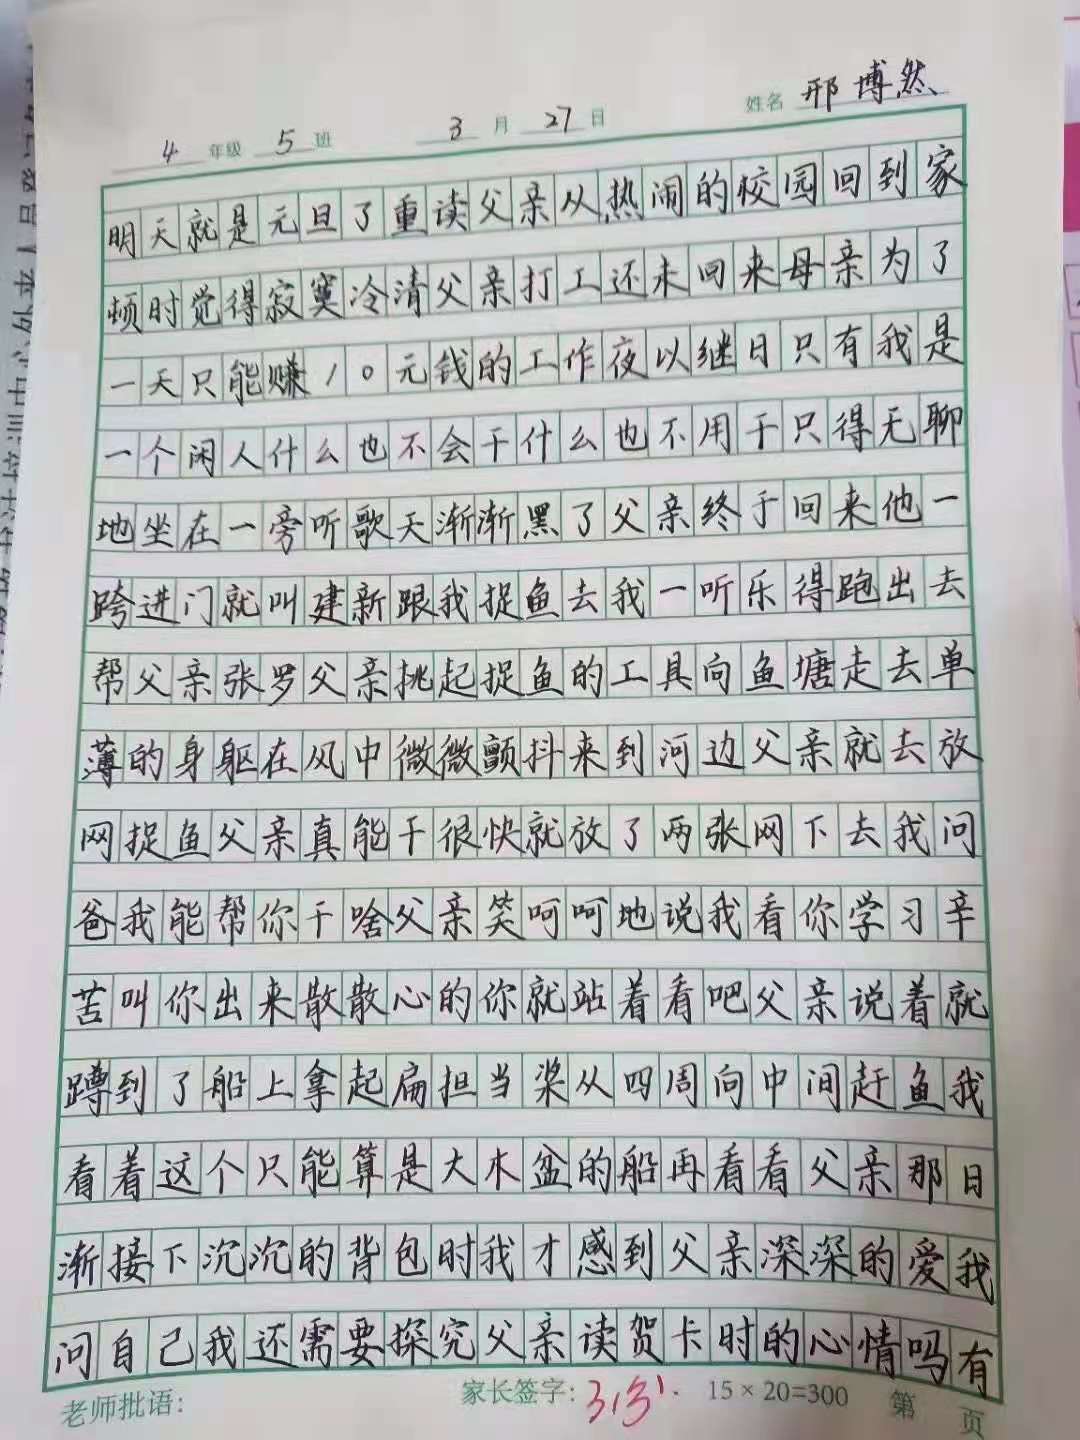 4年级 5班 3月27日 姓名 邢博然
明天就是元旦了重读父亲从热闹的校园回到家
顿时觉得寂寞冷清父亲打工还未回来母亲为了
一天只能赚10元钱的工作夜以继日只有我是
一个闲人什么也不会干什么也不用干只得无聊
地坐在一旁听歌天渐渐黑了父亲终于回来他一
跨进门就叫建新跟我捉鱼去我一听乐得跑出去
帮父亲张罗父亲挑起捉鱼的工具向鱼塘走去单
薄的身躯在风中微微颤抖来到河边父亲就去放
网捉鱼父亲真能干很快就放了两张网下去我问
爸我能帮你干啥父亲笑呵呵地说我看你学习辛
苦叫你出来散散心的你就站着看吧父亲说着就
蹲到了船上拿起扁担当桨从四周向中间赶鱼我
看着这个只能算是大木盆的船再看看父亲那日
渐接下沉沉的背包时我才感到父亲深深的爱我
问自己我还需要探究父亲读贺卡时的心情吗有
老师批语: 家长签字: 15×20=300 第 页